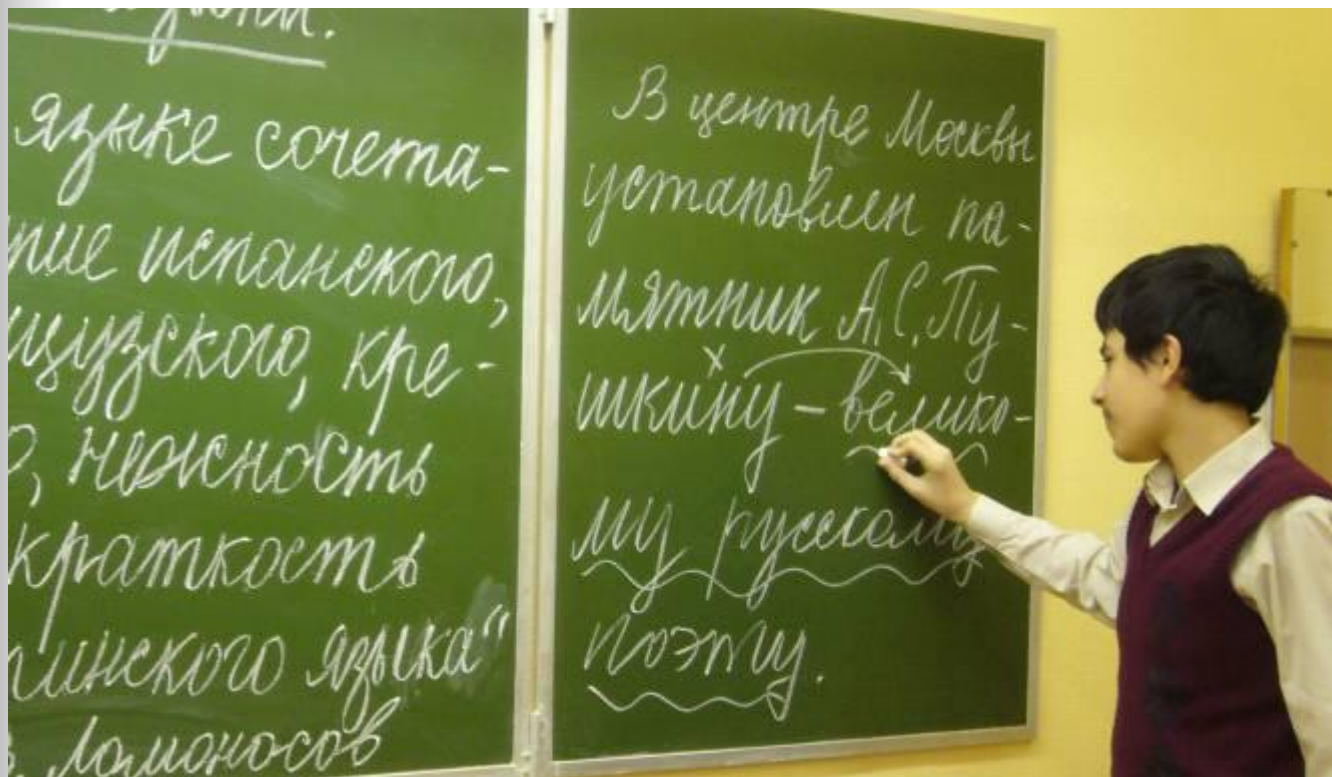 языке сочета-
испанского,
кре-
нежность
краткость
языка"
Ломоносов
В центре Москвы
установлен па-
мятник А.С. Пу-
шкину – велико-
му русскому
поэту.